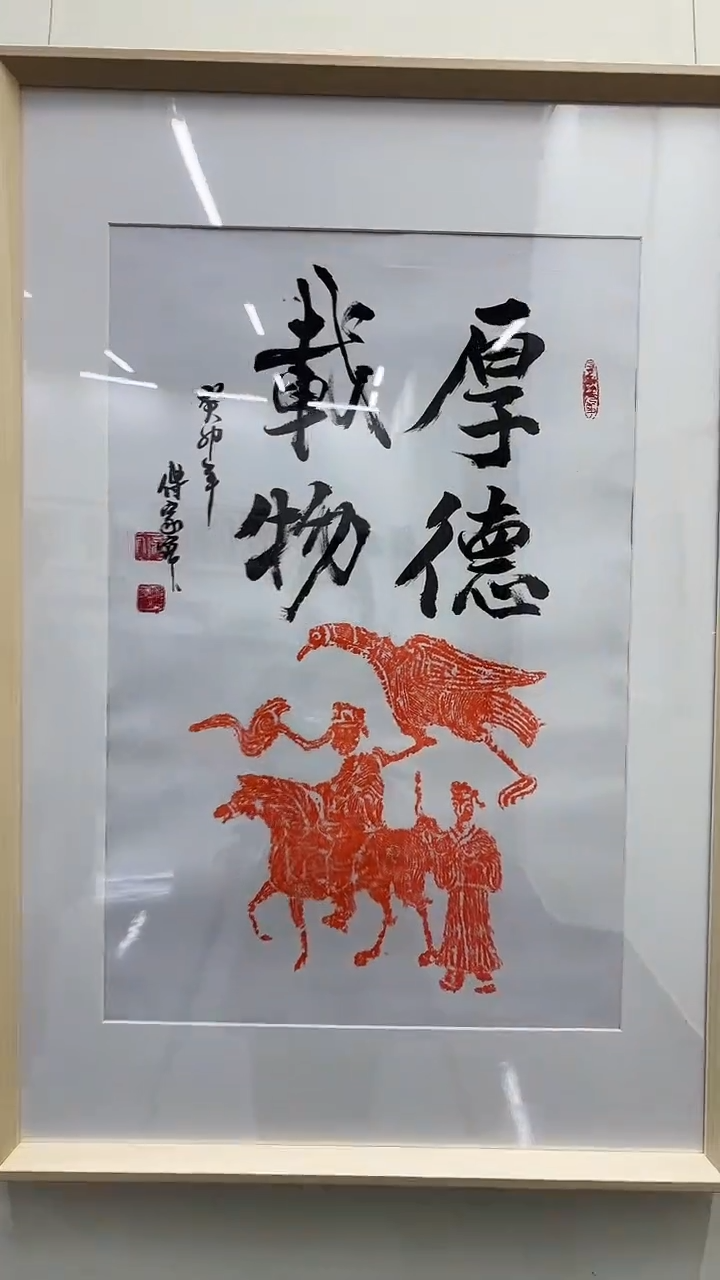 厚德
載物
癸卯年
傅家軍